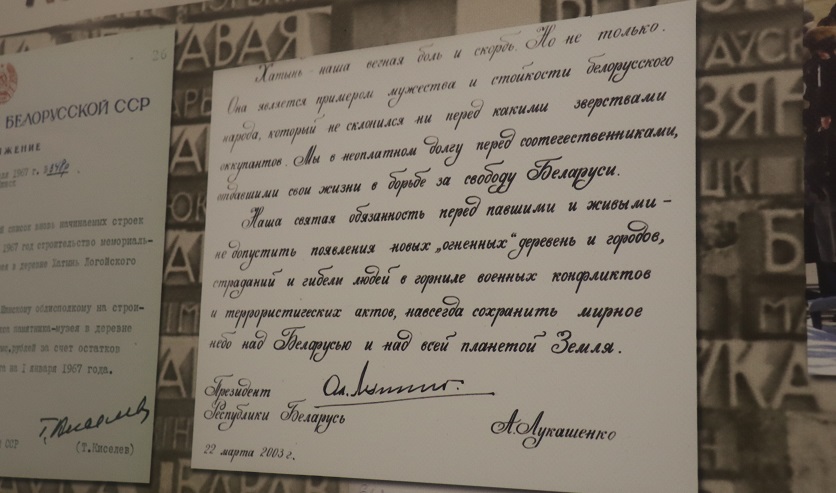 26
БЕЛОРУССКОЙ ССР
1967 г.
список вновь начинаемых строек
1967 год строительство мемориаль-
в деревне Хатынь Логойского
Минскому облисполкому на строи-
памятника-музея в деревне
рублей за счет остатков
на 1 января 1967 года.
ССР
(Т.Киселев)
Хатынь - наша вечная боль и скорбь. Но не только.
Она является примером мужества и стойкости белорусского
народа, который не склонился ни перед какими зверствами
оккупантов. Мы в неоплатном долгу перед соотечественниками,
отдавшими свои жизни в борьбе за свободу Беларуси.
Наша святая обязанность перед павшими и живыми -
не допустить появления новых „огненных“ деревень и городов,
страданий и гибели людей в горниле военных конфликтов
и террористических актов, навсегда сохранить мирное
небо над Беларусью и над всей планетой Земля.
Президент
Республики Беларусь
А.Лукашенко
22 марта 2003 г.